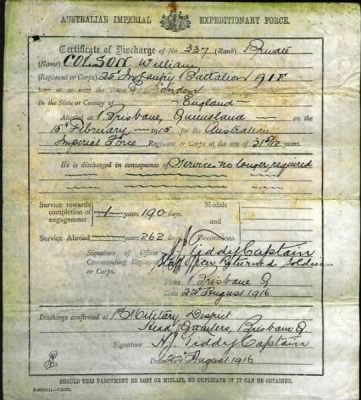 AUSTRALIAN IMPERIAL EXPEDITIONARY FORCE.
Certificate of Discharge of No. 337 (Rank) Private
(Name) COLSON, William
(Regiment or Corps) 25 Infantry Battalion
born at or near the Town of London
in the State or County of England
Attested at Brisbane, Queensland on the
15th February 1915 for the Australian
Imperial Force Regiment or Corps at the age of years
He is discharged in consequence of Service no longer required
Service towards completion of engagement 1 years 190 days.
Medals and Decorations
Service Abroad years 262 days
Signature of Officer Commanding Regiment or Corps. Tiddy Captain
Staff Officer Returned Soldiers
Place Brisbane Q
Date 22nd August 1916
Discharge confirmed at 1st Military District
Head Quarters, Brisbane Q.
Signature Tiddy Captain
Date 22nd August 1916
SHOULD THIS PARCHMENT BE LOST OR MISLAID, NO DUPLICATE OF IT CAN BE OBTAINED.